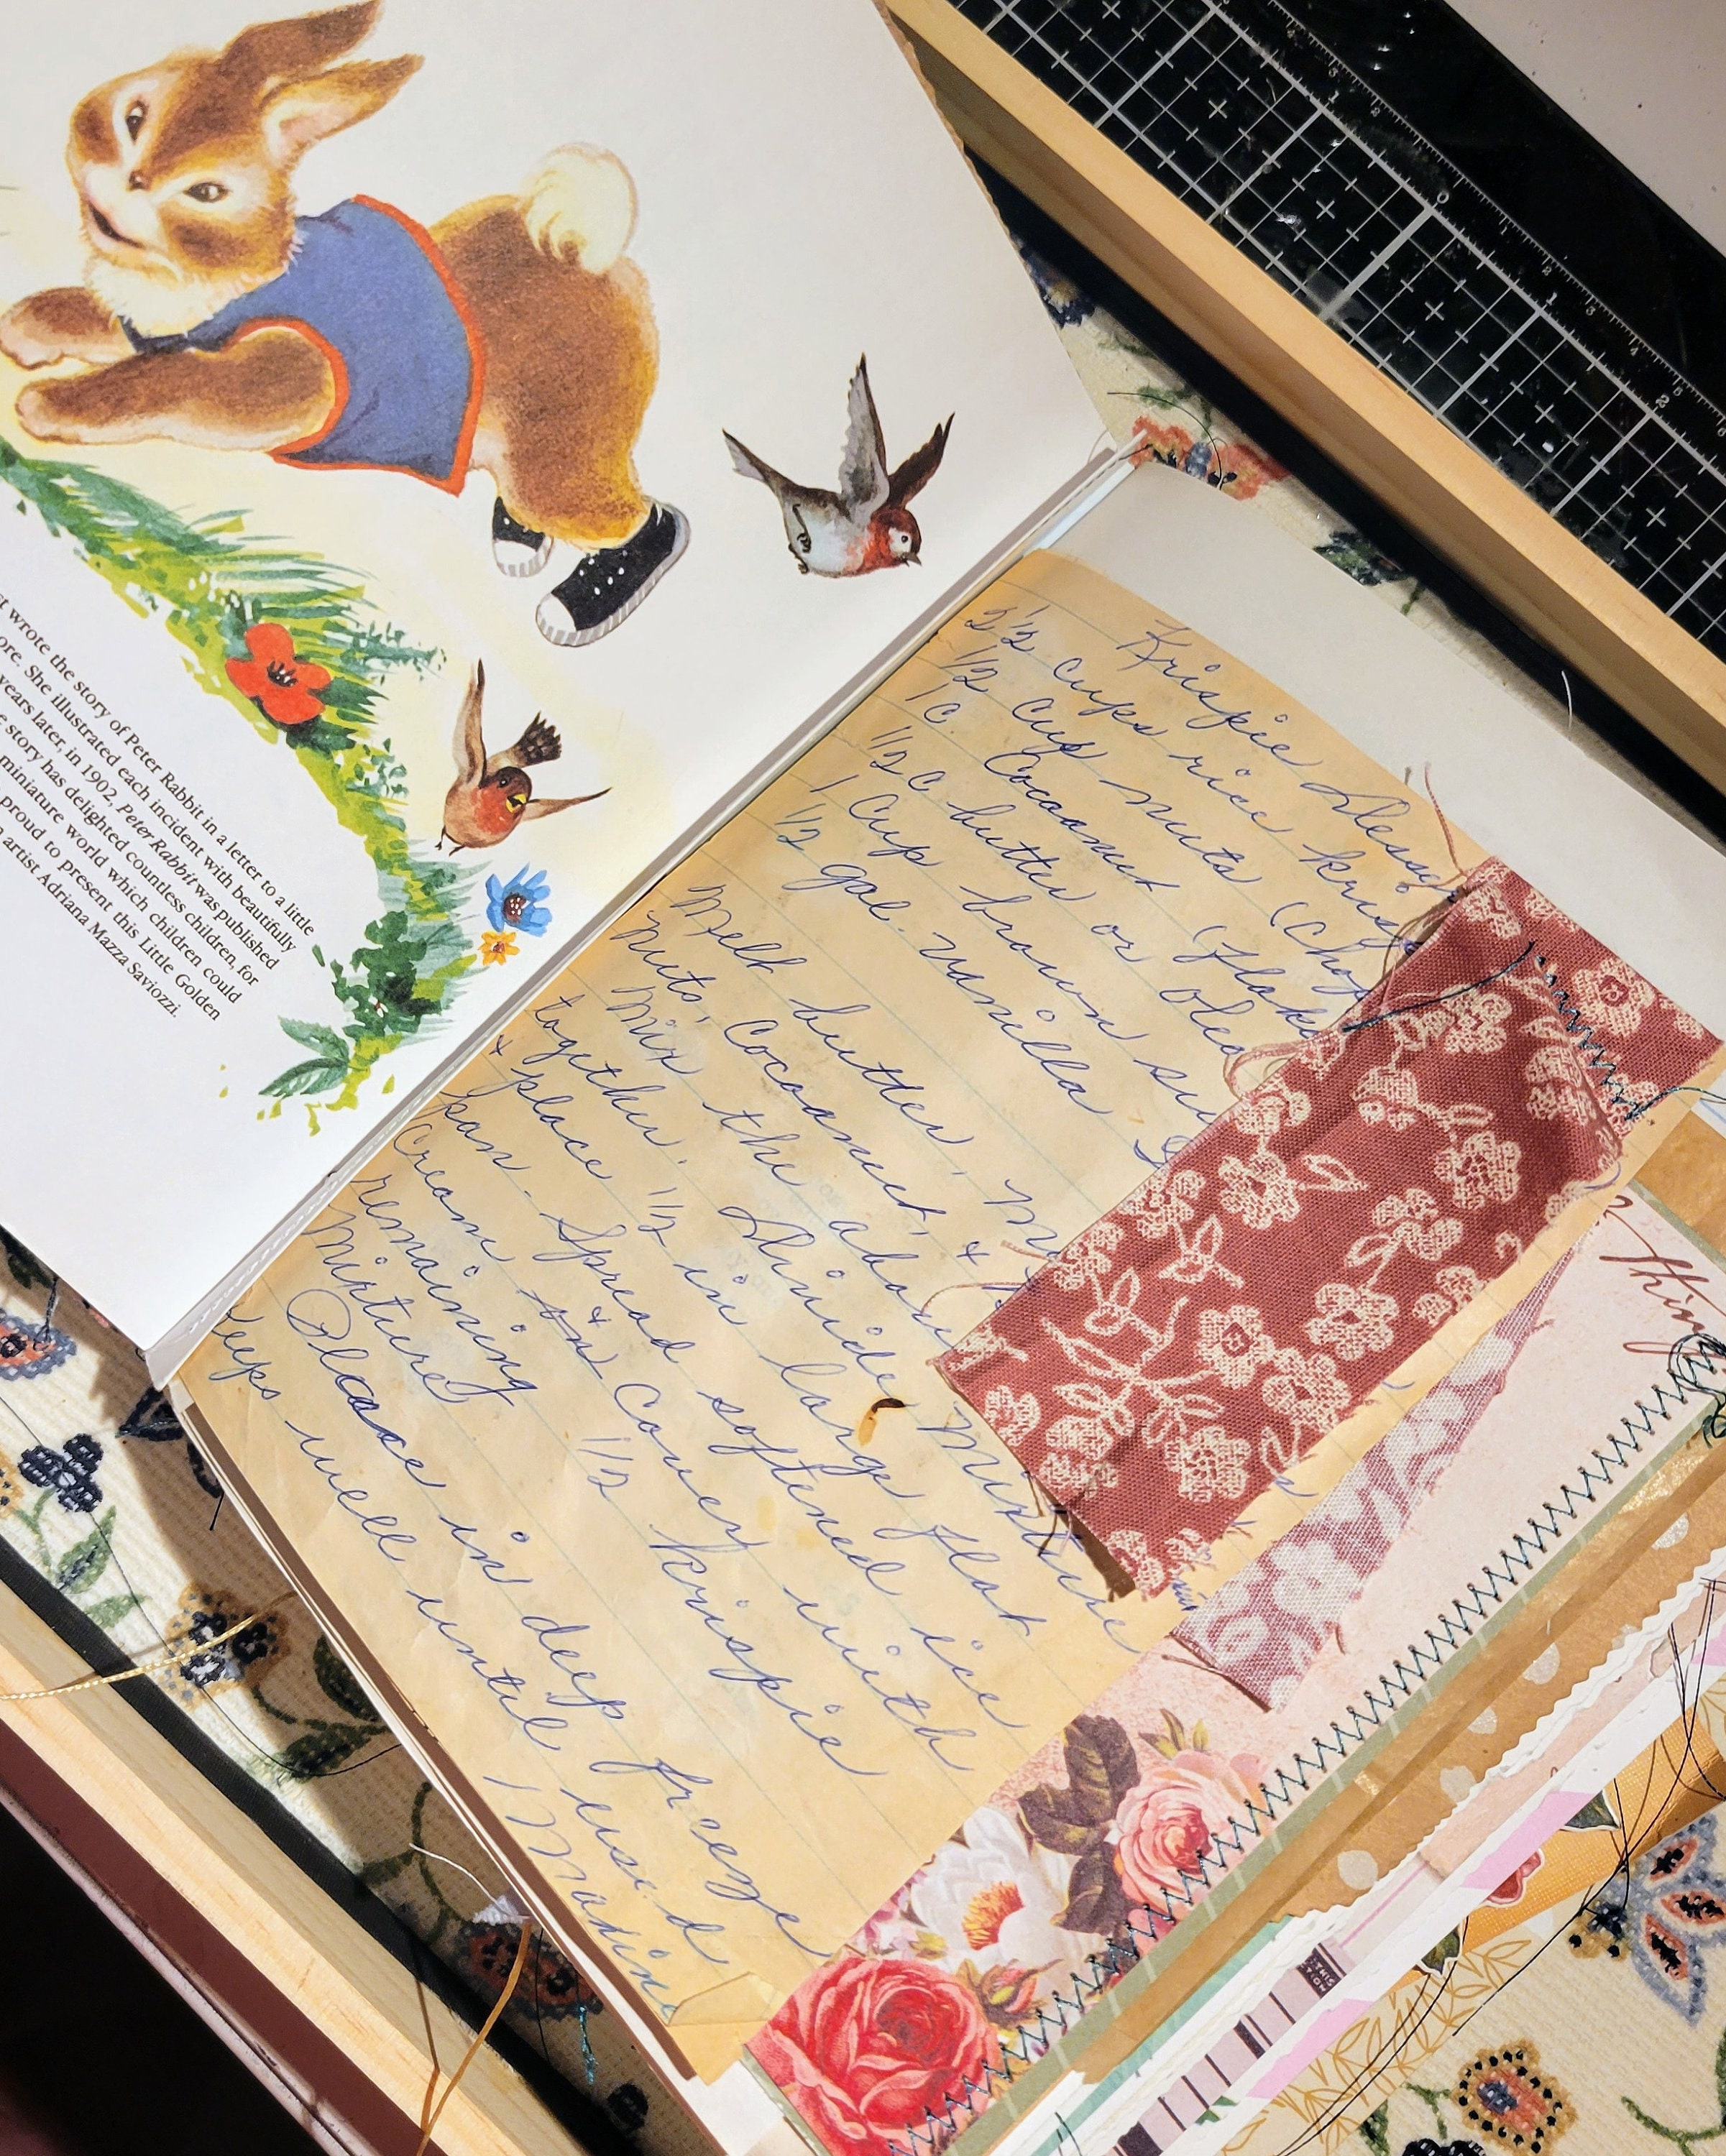 st wrote the story of Peter Rabbit in a letter to a little
ore. She illustrated each incident with beautifully
years later, in 1902, Peter Rabbit was published
e story has delighted countless children, for
miniature world which children could
proud to present this Little Golden
artist Adriana Mazza Saviozzi.
Krispie Desse
2 1/2 cups rice kris
1/2 cup nuts (Chop
1 C. Cocoanut (flake
1/2 C butter or oleo
1 Cup brown su
1/2 gal. vanilla
Melt butter,
nuts, Cocoanut, &
Mix the above
together. Divide Mixture
& place 1/2 in large flat
pan. Spread softened ice
Cream & Cover with
remaining 1/2 krispie
Mixture
Place in deep freeze
Keeps well until used
Thing